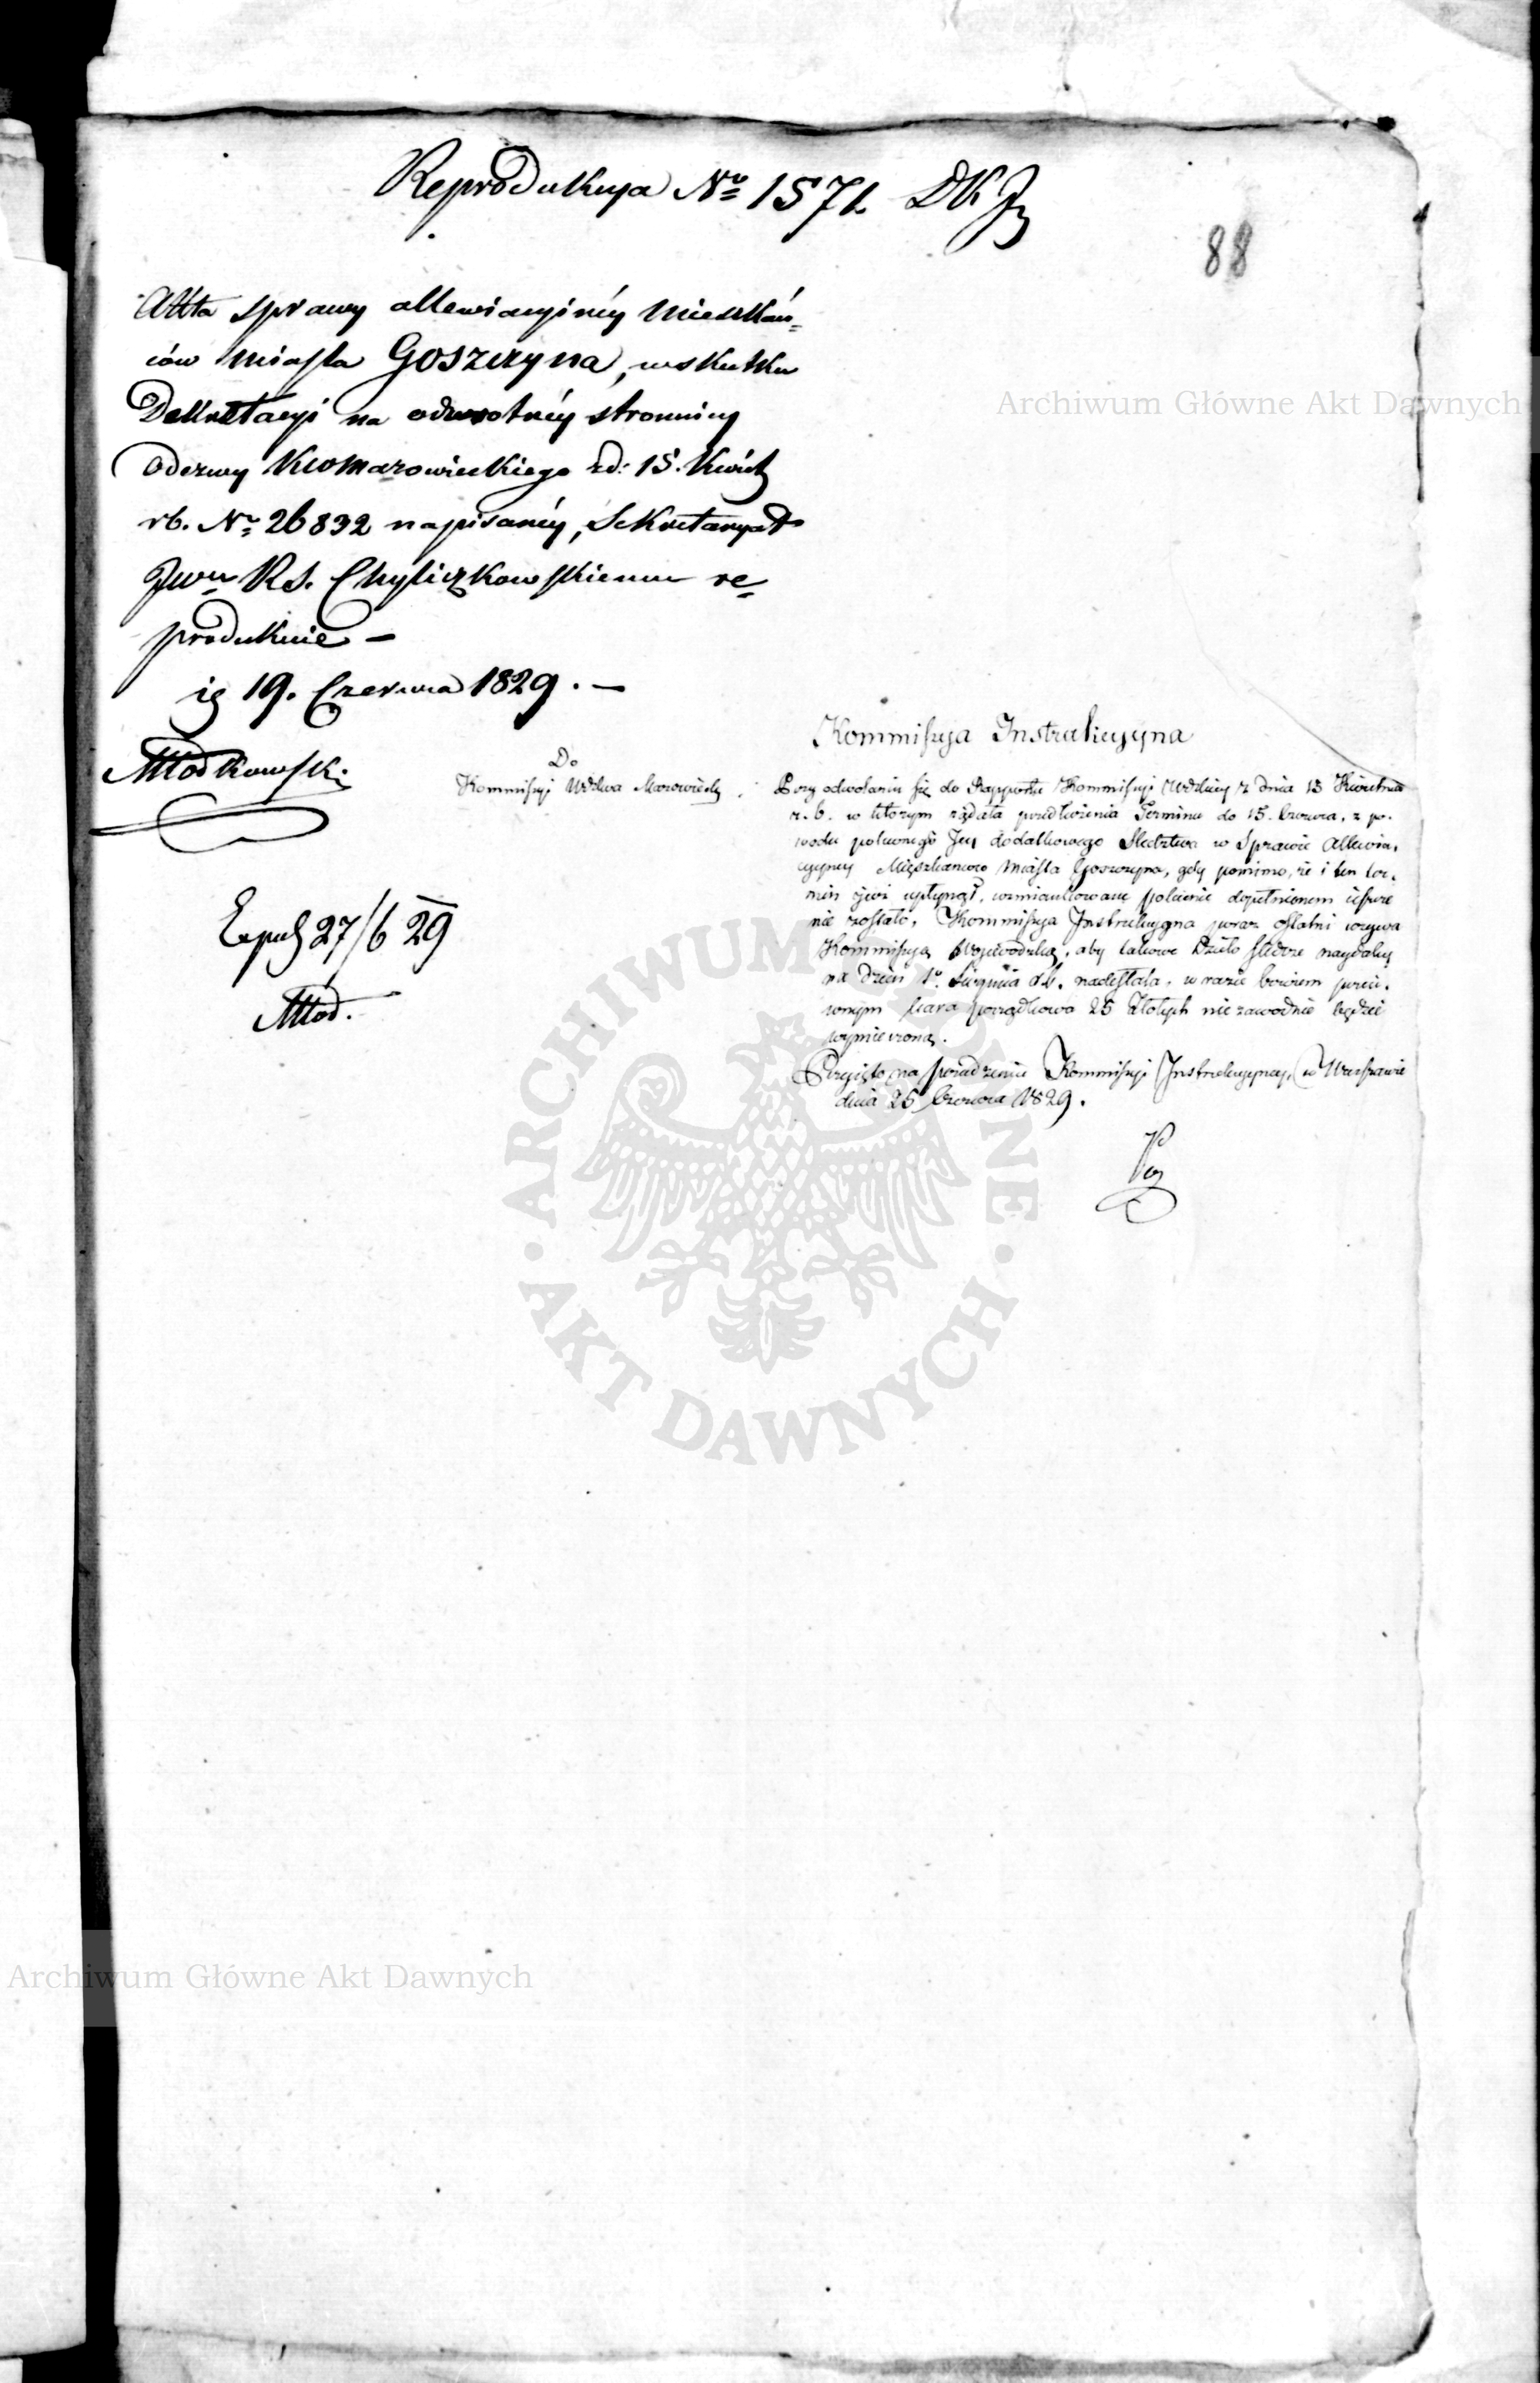 Reprodukcya No 1571. DKJ
88
Akta sprawy allewiacyinéy Mieszkań=
ców Miasta Goszczyna, wskutku
Dekretacyi na odwrotnéy stronnicy
Odezwy KwoMazowieckiego zd: 15. Kwiet
rb. No 26832 napisanéy, Sekretaryat
Jwu RS. Chyliczkowskiemu re=
produkuie —
19. Czerwca 1829. —
Młodkowski
27/6 29
Młod.
Kommissya Instrukcyyna
Do
Kommissyi Wdztwa Mazowieck
Przy odwołaniu się do Rapportu Kommissyi Wdzkiey z dnia 15 Kwietnia
r. b. w którym żądała przedłużenia Terminu do 15. Czerwca, z po-
wodu poleconego Jey dodatkowego Sledztwa w Sprawie Allewia-
cyyney Mieszkanców Miasta Goszczyna, gdy pomimo, że i ten ter-
min iuż upłynął, wzmiankowane polecenie dopełnionem ieszcze
nie zostało, Kommissya Instrukcyyna poraz ostatni wzywa
Kommissyą Woiewodzką, aby takowe Dzieło śledcze naydaley
na dzień 1o Sierpnia r.b. nadesłała, w razie bowiem przeci-
wnym kara porządkowa 25 Złotych niezawodnie będzie
wymierzoną.
Przyięto na posiedzeniu Kommissyi Instrukcyyney, w Warszawie
dnia 25 Czerwca 1829.
Archiwum Główne Akt Dawnych
ARCHIWUM GŁÓWNE
AKT DAWNYCH
Archiwum Główne Akt Dawnych